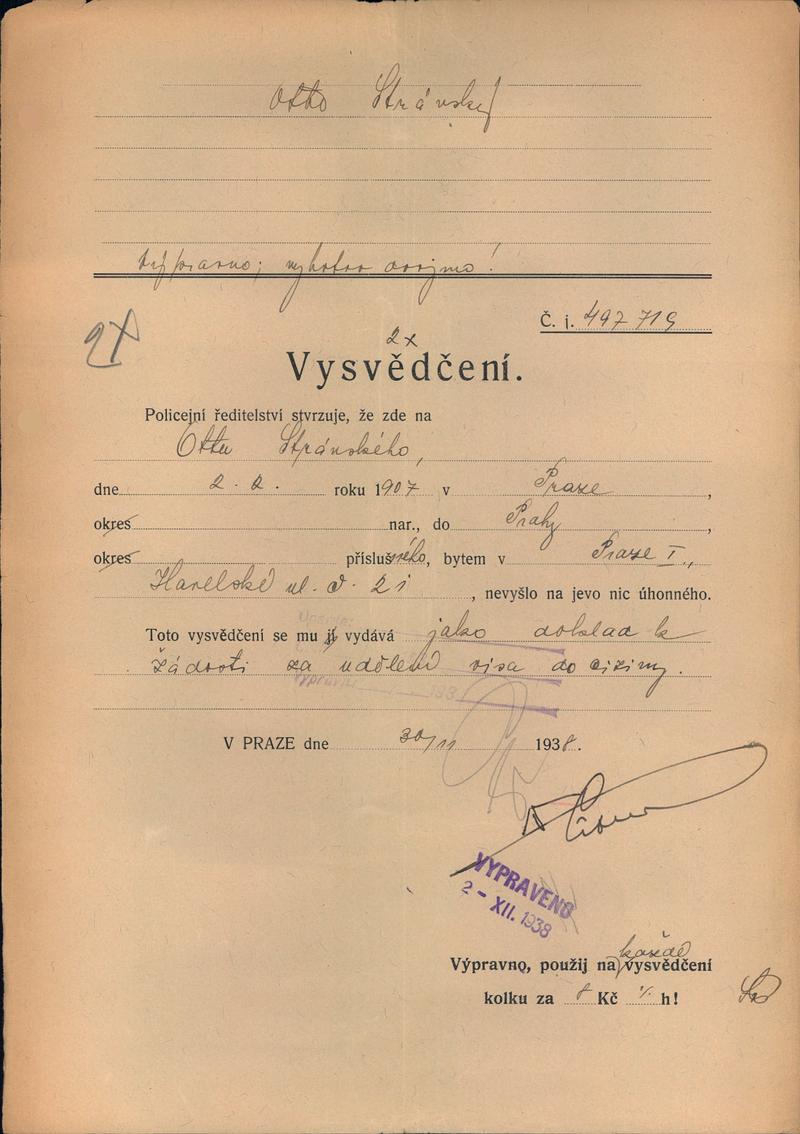 Otto Stránský
Výpravno; vyhotov dvojmo!
Č. j. 497 719
2x
2x
Vysvědčení.
Policejní ředitelství stvrzuje, že zde na
Ottu Stránského,
dne 2. 2. roku 1907 v Praze,
okres nar., do Prahy,
okres příslušného, bytem v Praze I.,
Havelské ul. č. 21, nevyšlo na jevo nic úhonného.
Toto vysvědčení se mu jí vydává jako doklad k
žádosti za udělení visa do ciziny.
V PRAZE dne 30/11 1938.
VYPRAVENO
2 - XII. 1938
každé
Výpravno, použij na vysvědčení
kolku za 8 Kč h!